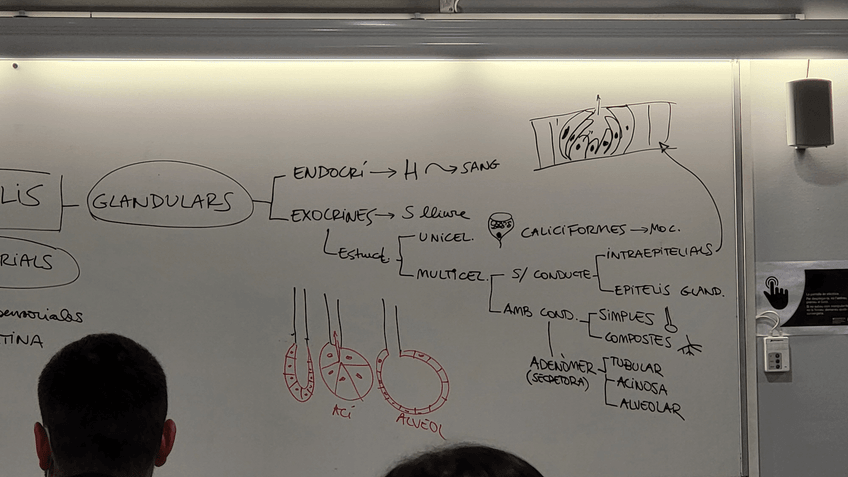 LIS
GLANDULARS
RIALS
TINA
ENDOCRÍ → H → SANG
EXOCRINES → S lliure
Estruct.
UNICEL.
CALICIFORMES → MOC.
MULTICEL.
S/ CONDUCTE
INTRAEPITELIALS
EPITELIS GLAND.
AMB COND.
SIMPLES
COMPOSTES
ADENÒMER
(SECRETORA)
TUBULAR
ACINOSA
ALVEOLAR
ACÍ
ALVEOL